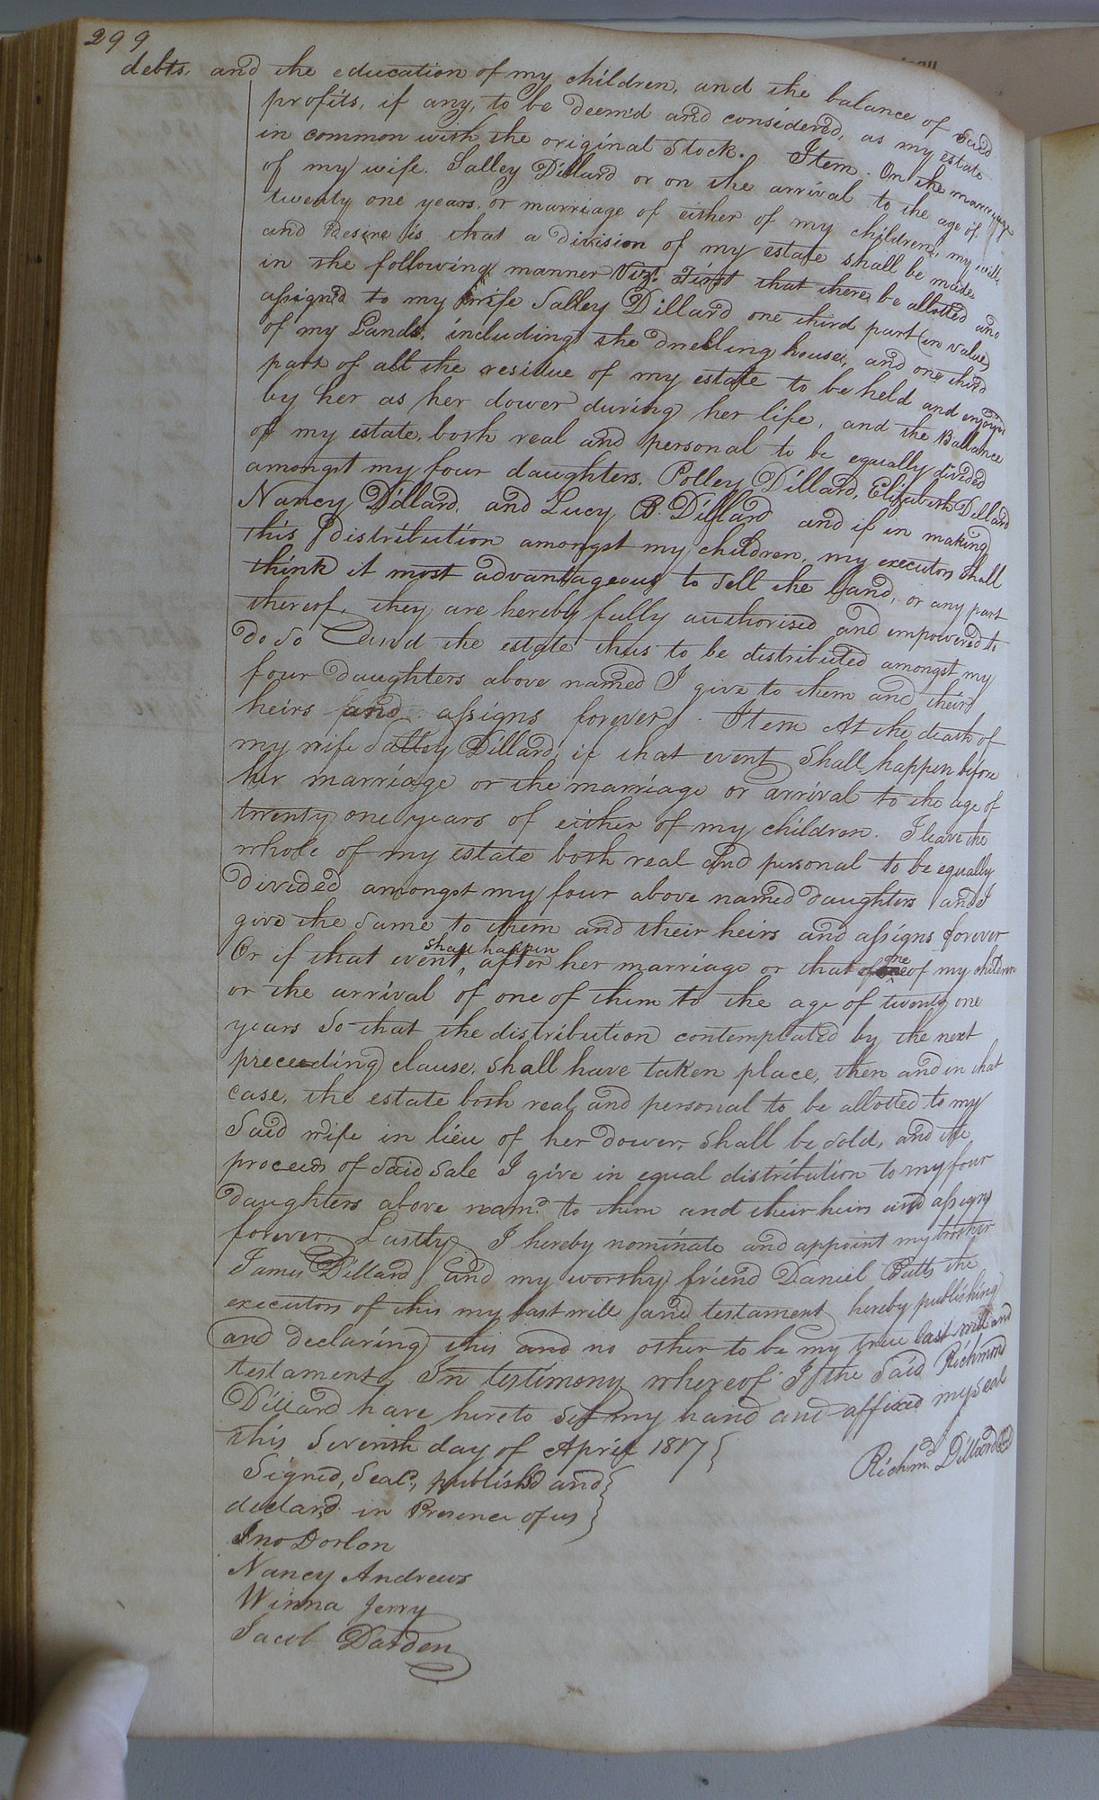 299
debts, and the education of my children, and the balance of said
profits, if any, to be deem'd and considered, as my estate
in common with the original Stock. Item. On the marriage
of my wife Salley Dillard or on the arrival to the age of
twenty one years, or marriage of either of my children, my will
and Desire is that a division of my estate shall be made
in the following manner Viz! First that there be allotted and
assigned to my wife Salley Dillard one third part (in value)
of my Lands, including the dwelling house, and one third
part of all the residue of my estate to be held and enjoyed
by her as her dower during her life, and the Ballance
of my estate, both real and personal to be equally divided
amongst my four daughters, Polley Dillard, Elizabeth Dillard
Nancy Dillard, and Lucy B. Dillard and if in making
this distribution amongst my children, my executors shall
think it most advantageous to sell the land, or any part
thereof, they are hereby fully authorised and empowered to
do so and the estate thus to be distributed amongst my
four daughters above named I give to them and their
heirs and assigns forever. Item At the death of
my wife Salley Dillard, if that event shall happen before
her marriage or the marriage or arrival to the age of
twenty one years of either of my children. I leave the
whole of my estate both real and personal to be equally
divided amongst my four above named daughters and I
give the same to them and their heirs and assigns forever
Or if that event, shall happen after her marriage or that of one of my children
or the arrival of one of them to the age of twenty one
years so that the distribution contemplated by the next
preceeding clause, shall have taken place, then and in that
case, the estate both real and personal to be allotted to my
said wife in lieu of her dower shall be sold, and the
proceeds of said sale I give in equal distribution to my four
daughters above nam.d to them and their heirs and assigns
forever. Lastly I hereby nominate and appoint my brother
James Dillard and my worthy friend Daniel Potts the
executors of this my last will and testament hereby publishing
and declaring this and no other to be my true last will and
testament. In testimony whereof I the said Richmond
Dillard have hereto set my hand and affixed my seal
this Seventh day of April 1817
Richm.d Dillard
Signed, Seal.d, publish'd and
declar'd in Presence of us
Jno Dorlon
Nancy Andrews
Winna Jerry
Jacob Darden